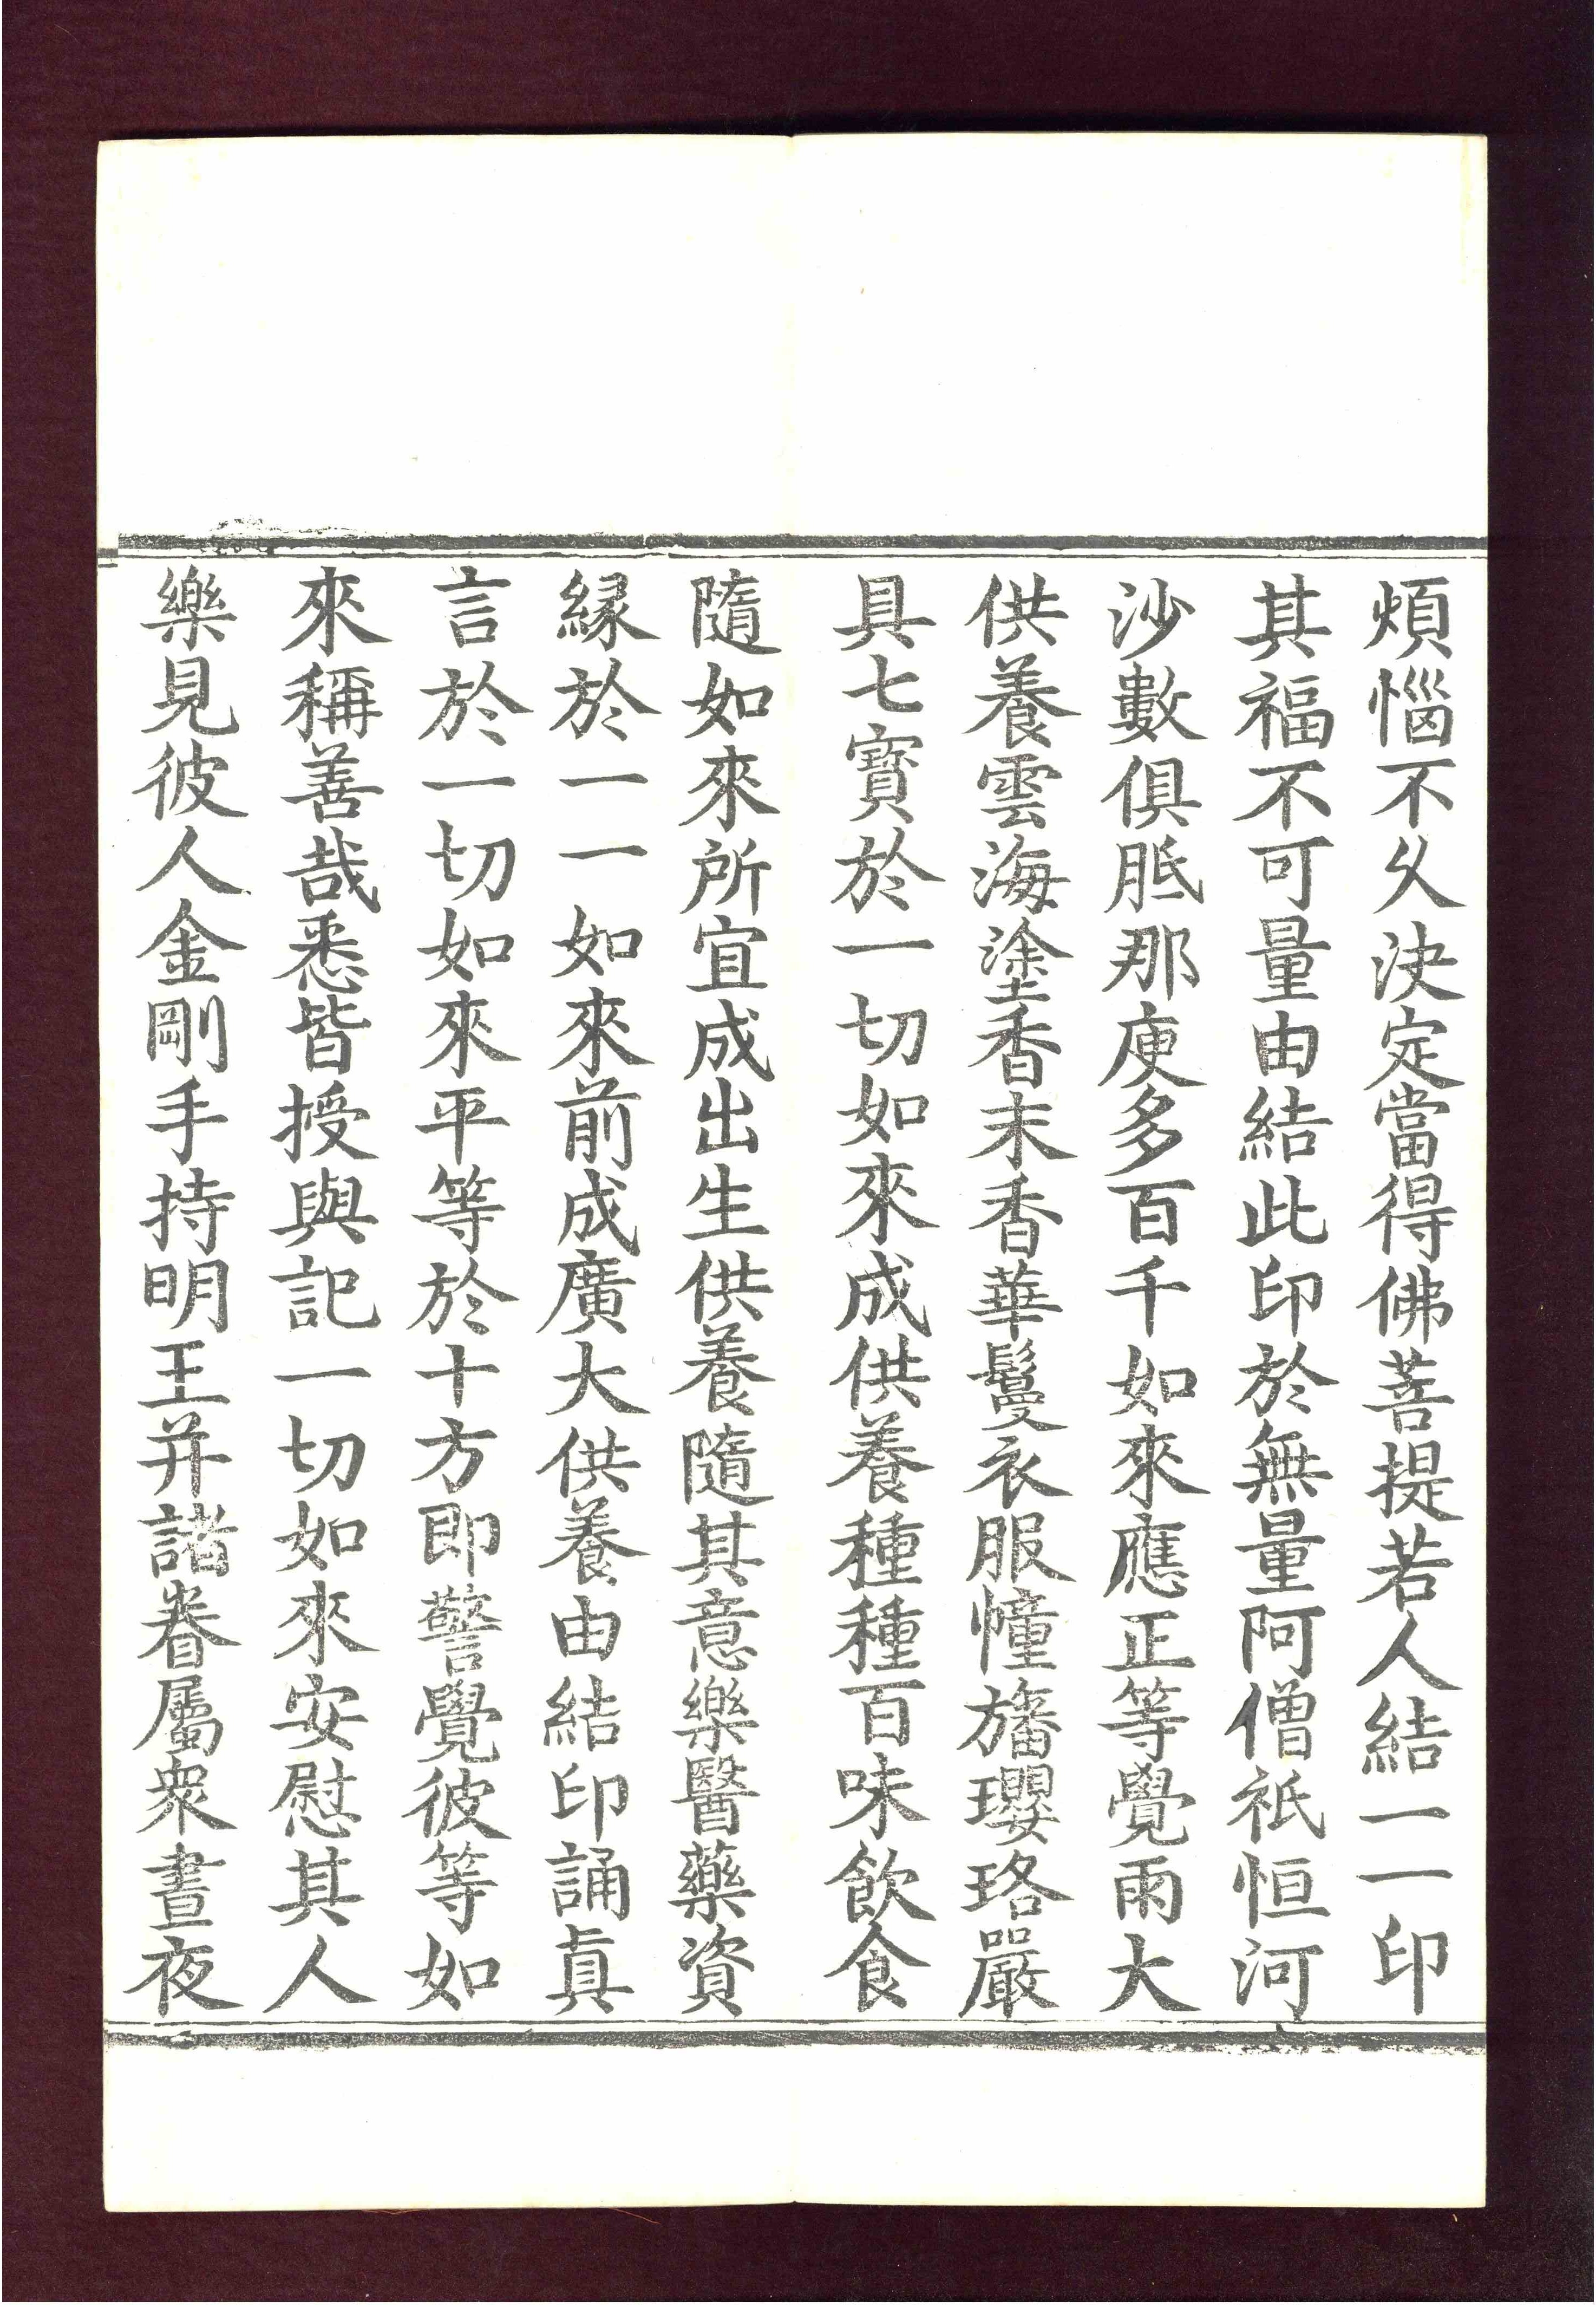 煩惱不久決定當得佛菩提若人結一一印
其福不可量由結此印於無量阿僧祇恒河
沙數俱胝那庾多百千如來應正等覺雨大
供養雲海塗香末香華鬘衣服幢旛瓔珞嚴
具七寶於一切如來成供養種種百味飲食
隨如來所宜成出生供養隨其意樂醫藥資
緣於一一如來前成廣大供養由結印誦真
言於一切如來平等於十方即警覺彼等如
來稱善哉悉皆授與記一切如來安慰其人
樂見彼人金剛手持明王并諸眷屬眾晝夜